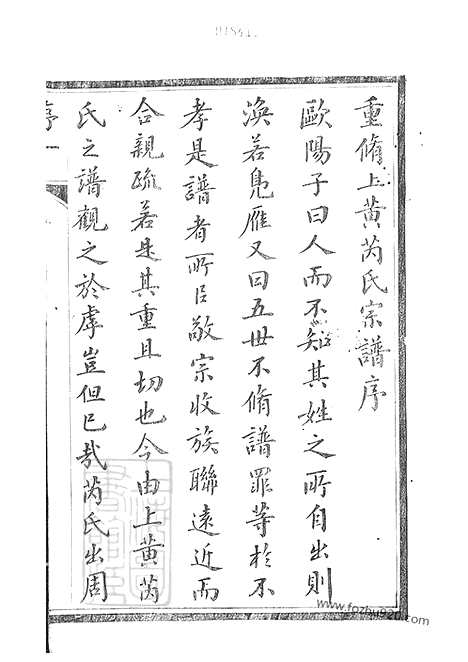 重脩上黄芮氏宗譜序
歐陽子曰人而不知其姓之所自出則
渙若凫雁又曰五世不脩譜罪等於不
孝是譜者所㠯敬宗收族聯遠近而
合親疏若是其重且切也今由上黄芮
氏之譜觀之於虖豈但已哉芮氏出周
序一
www.fozhu920.com